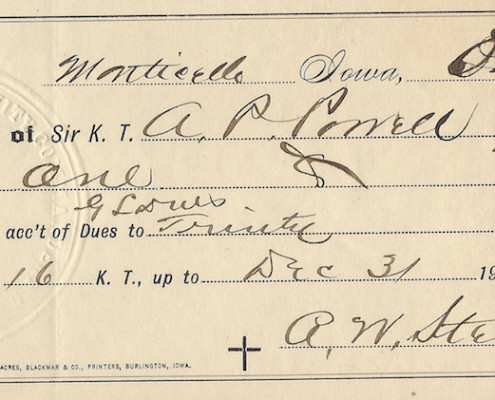 Monticello Iowa,
of Sir K. T. A. P. Powell
One
G L Dues
acc't of Dues to Trinity
16 K. T., up to Dec 31 19
A. W. Ste
ACRES, BLACKMAR & CO., PRINTERS, BURLINGTON, IOWA.